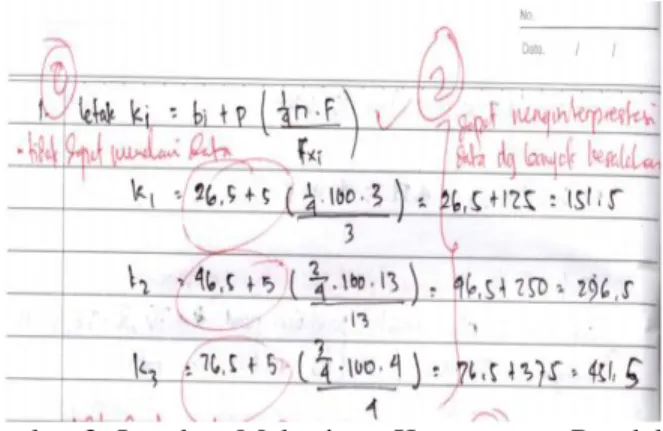 No.
Date. / /
① ②
1. letak ki = bi + p ( 1/4 n . F / fxi )
• tidak dapat Data
dapat menginterprestasi
data dg banyak kesalahan
k1 = 26,5 + 5 ( 1/4 . 100 . 3 / 3 ) = 26,5 + 125 = 151,5
k2 = 46,5 + 5 ( 2/4 . 100 . 13 / 13 ) = 46,5 + 250 = 296,5
k3 = 76,5 + 5 ( 3/4 . 100 . 4 / 4 ) = 76,5 + 375 = 451,5